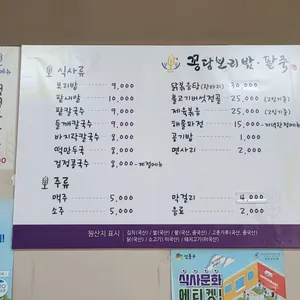 꽁당보리밥·팥죽
식사류
보리밥 9,000
팥새알 10,000
팥칼국수 9,000
들깨칼국수 9,000
바지락칼국수 8,000
떡만두국 8,000
검정콩국수 8,000
닭볶음탕 30,000
불고기버섯전골 25,000 (2인기준)
제육볶음 25,000 (2인기준)
해물파전 15,000
공기밥 1,000
면사리 2,000
주류
맥주 5,000
소주 5,000
막걸리 4,000
음료 2,000
원산지 표시
식사문화